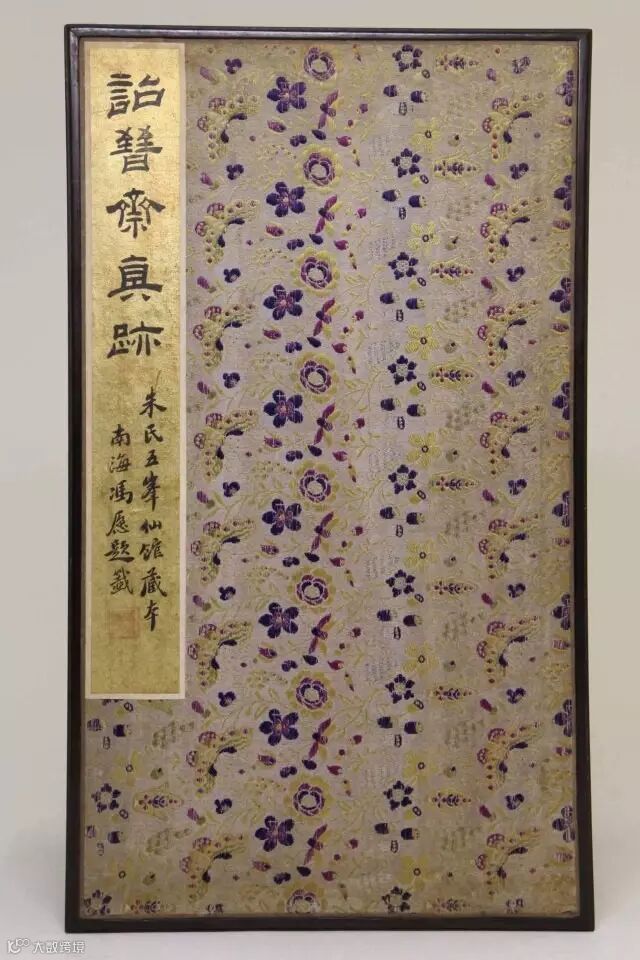 詒晉齋真跡
朱氏五峯仙館藏本
南海馮愿題籤
大数跨境